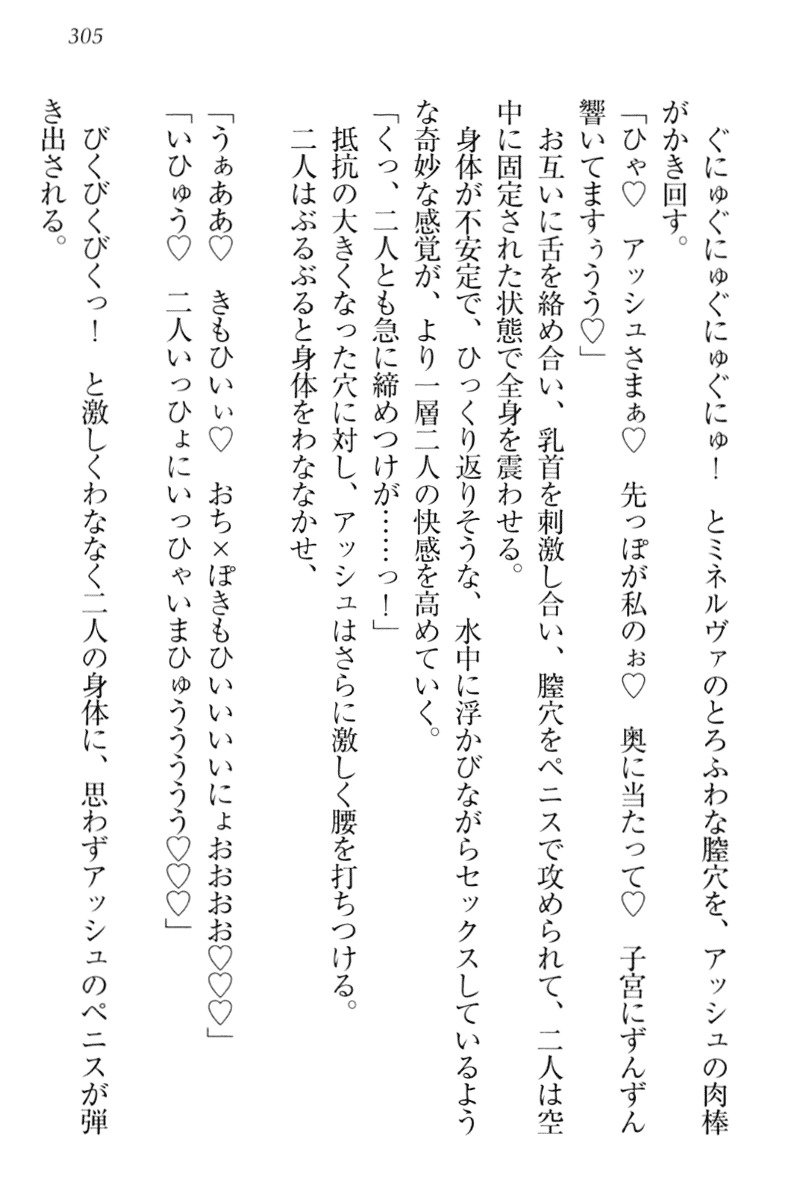 305
ぐにゅぐにゅぐにゅぐにゅ！　とミネルヴァのとろふわな膣穴を、アッシュの肉棒
がかき回す。
「ひゃ♡　アッシュさまぁ♡　先っぽが私のぉ♡　奥に当たって♡　子宮にずんずん
響いてますぅうう♡」
お互いに舌を絡め合い、乳首を刺激し合い、膣穴をペニスで攻められて、二人は空
中に固定された状態で全身を震わせる。
身体が不安定で、ひっくり返りそうな、水中に浮かびながらセックスしているよう
な奇妙な感覚が、より一層二人の快感を高めていく。
「くっ、二人とも急に締めつけが……っ！」
抵抗の大きくなった穴に対し、アッシュはさらに激しく腰を打ちつける。
二人はぶるぶると身体をわななかせ、
「うぁああ♡　きもひいぃ♡　おち×ぽきもひいいいいにょおおおお♡♡♡」
「いひゅう♡　二人いっひょにいっひゃいまひゅうううう♡♡♡」
びくびくびくっ！　と激しくわななく二人の身体に、思わずアッシュのペニスが弾
き出される。